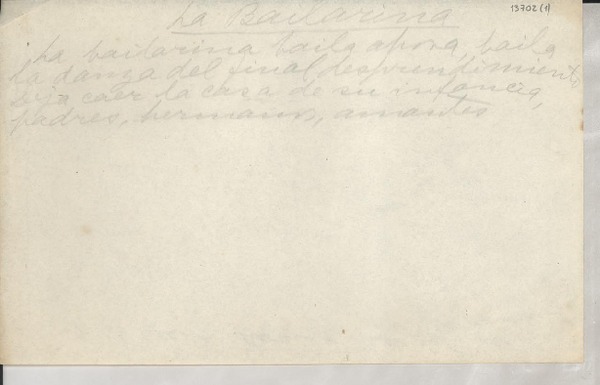 13702 (1)
La Bailarina
La bailarina baila ahora, baila
la danza del final desprendimiento
deja caer la casa de su infancia,
padres, hermanos, amantes